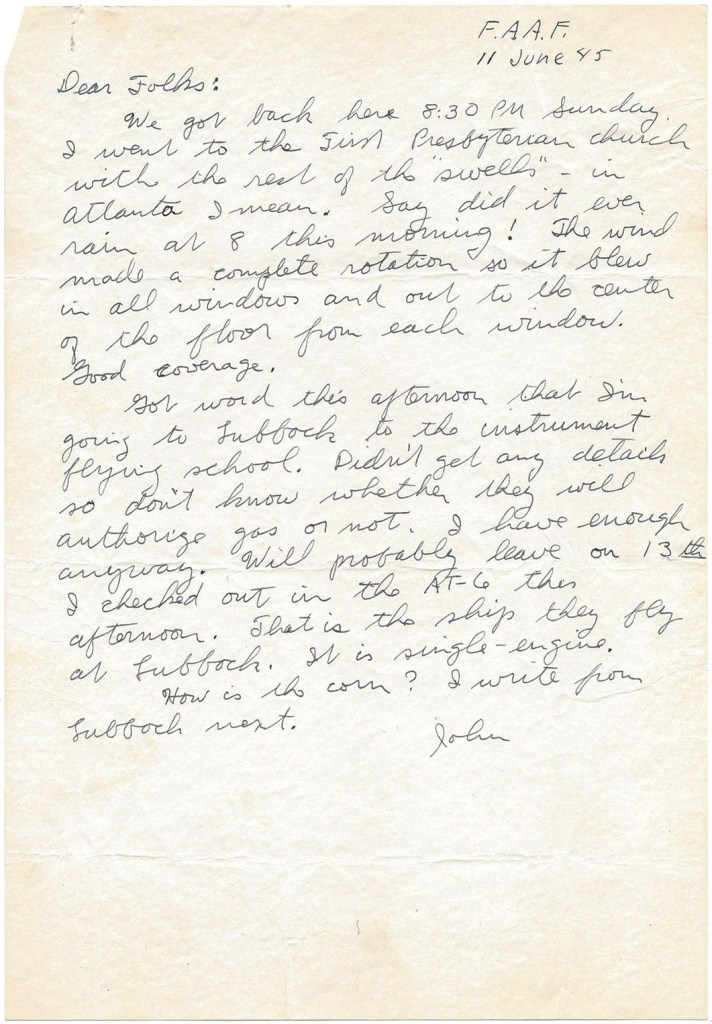 F.A.A.F.
11 June 45
Dear Folks:
We got back here 8:30 PM Sunday.
I went to the First Presbyterian church
with the rest of the "swells" - in
Atlanta I mean. Say did it ever
rain at 8 this morning! The wind
made a complete rotation so it blew
in all windows and out to the center
of the floor from each window.
Good coverage.
Got word this afternoon that I'm
going to Lubbock to the instrument
flying school. Didn't get any details
so don't know whether they will
authorize gas or not. I have enough
anyway. Will probably leave on 13th
I checked out in the AT-6 this
afternoon. That is the ship they fly
at Lubbock. It is single-engine.
How is the corn? I write from
Lubbock next.
John